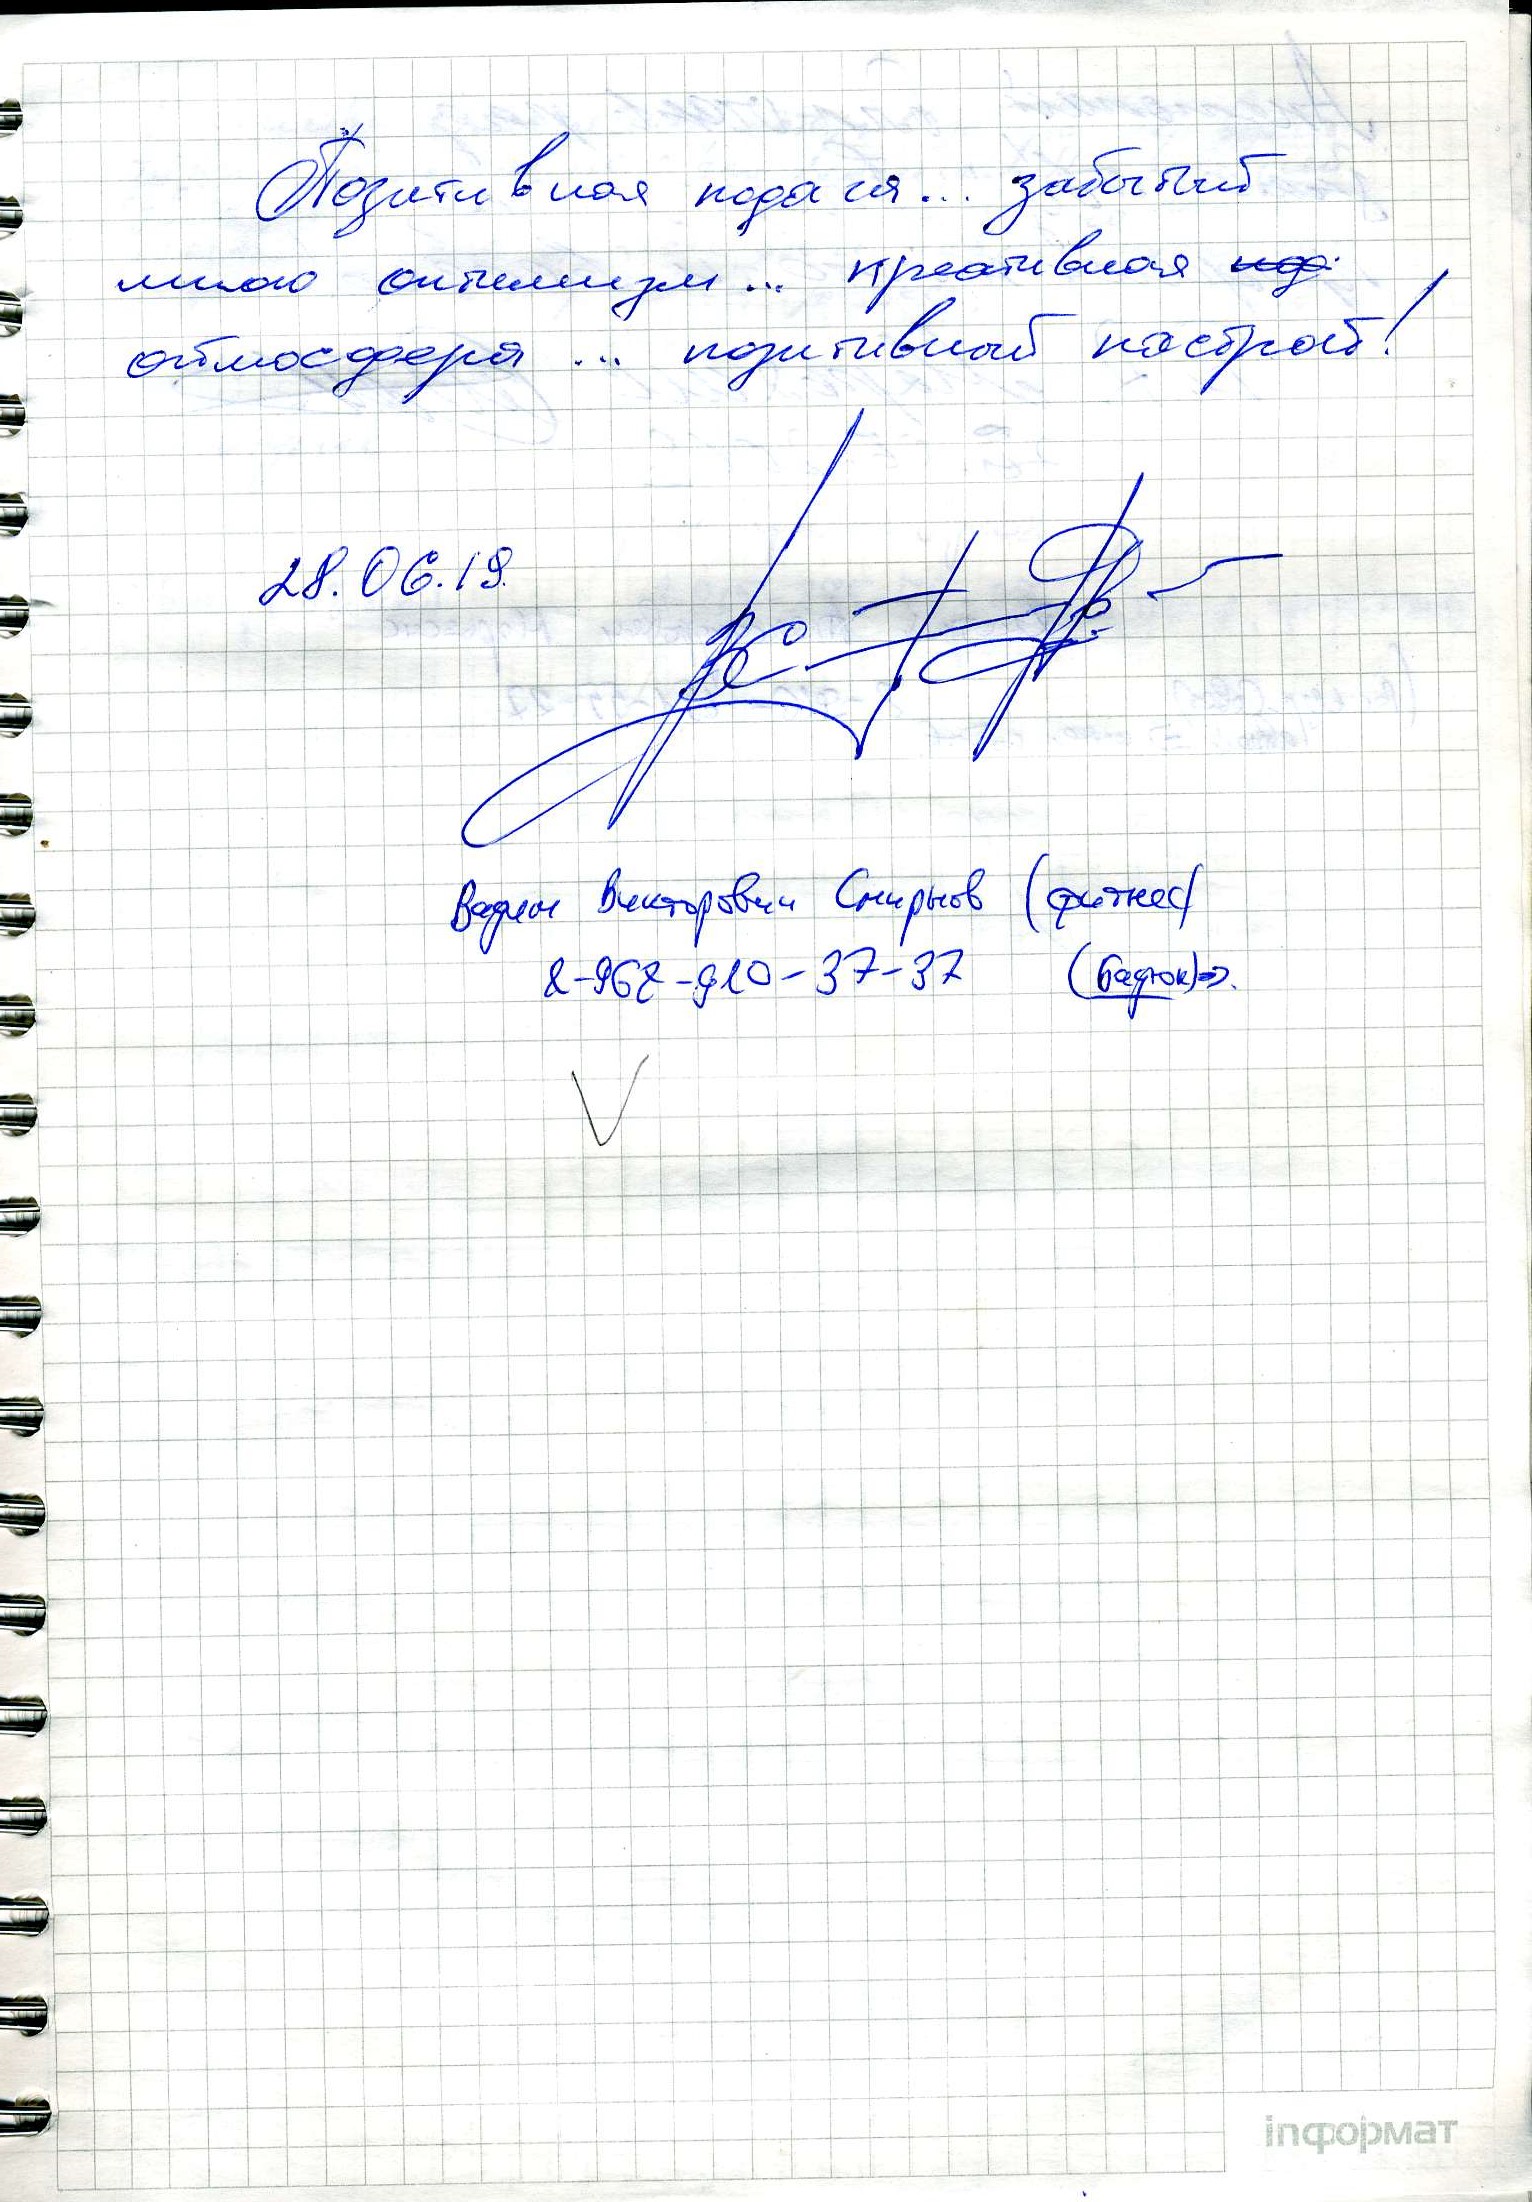 Позитивная подача... забытый
мною оптимизм... креативная под.
атмосфера ... позитивный настрой!
28.06.19.
Вадим Викторович Смирнов (фитнес)
8-967-910-37-37
inформат